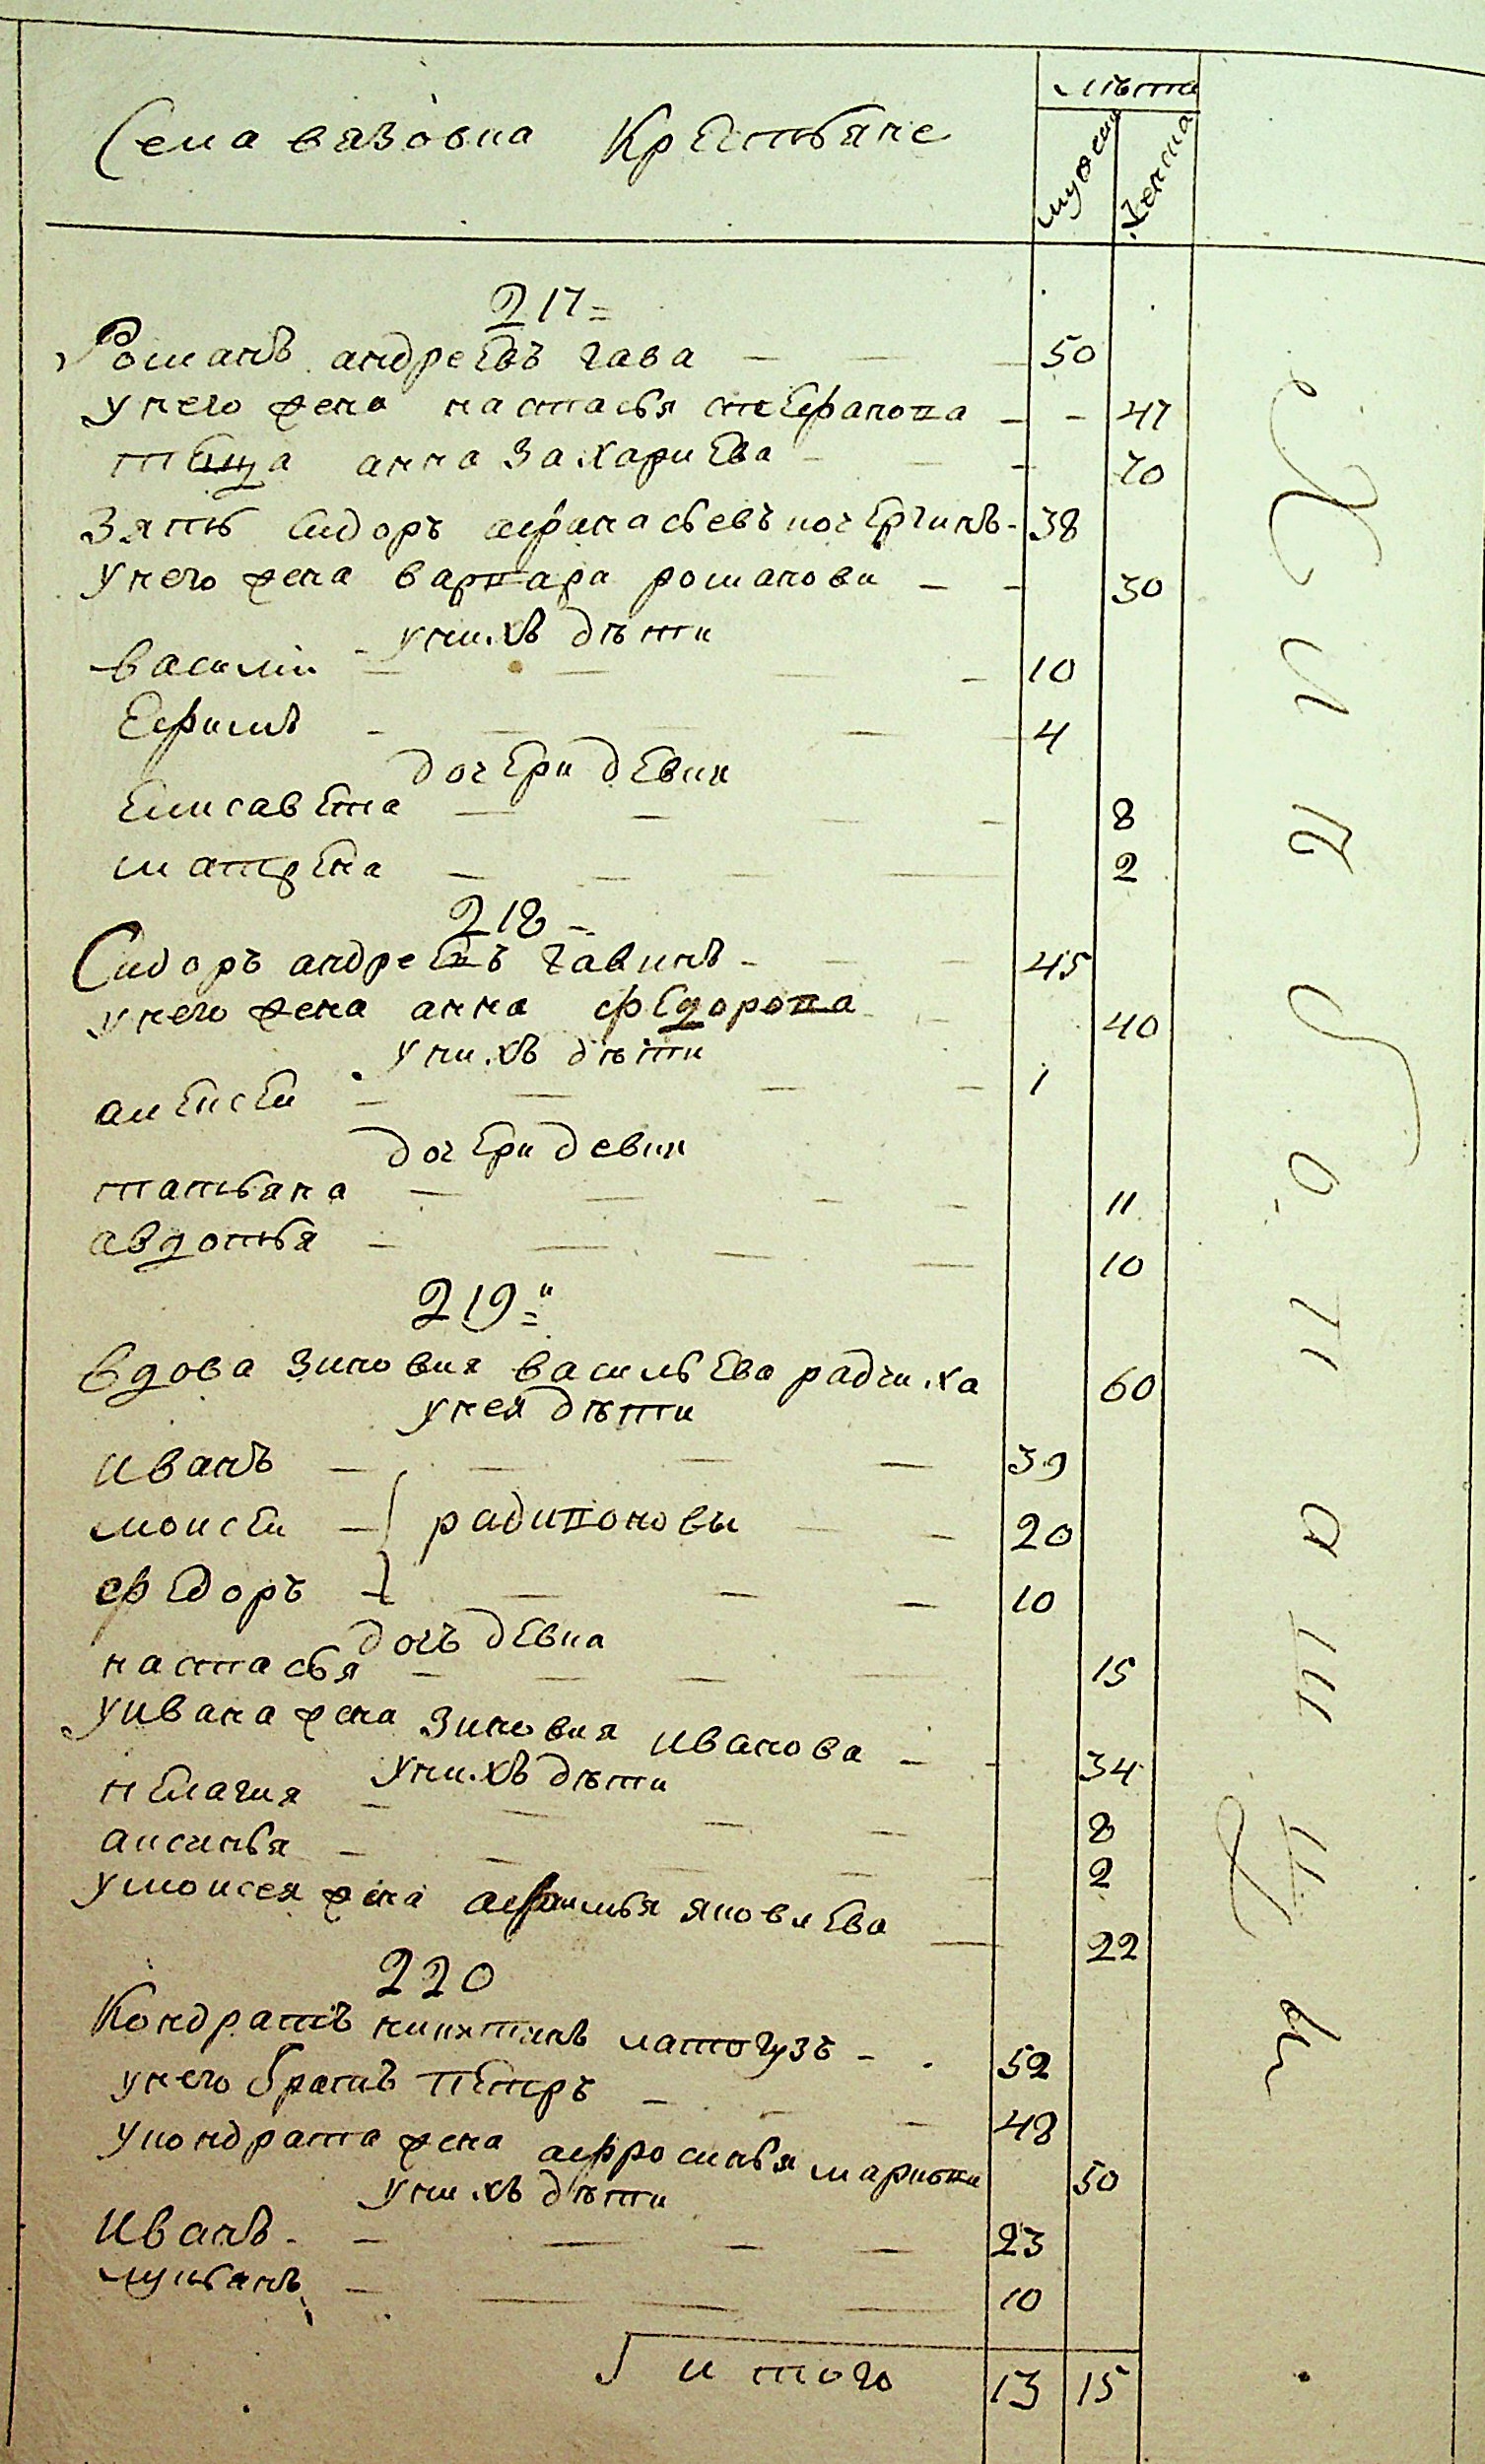 Села вязовка Крестьяне
лѣта
мужска
женска
217
Романъ андреевъ гава 50
у него жена настасья стефанова 47
тёща анна захариева 70
Зять сидоръ афанасьевъ кочергинъ 38
у него жена варвара романова 30
у нихъ дѣти
василiи 10
Ефимъ 4
дочери девки
Елисавета 8
матрена 2
218
Сидоръ андреевъ гавинъ 45
у него жена анна федорова 40
у нихъ дѣти
алексеи 1
дочери девки
татьяна 11
авдотья 10
219
вдова зиновия васильева радчиха 60
у нея дѣти
иванъ 39
моисеи радивоновы 20
федоръ 10
дочь девка
настасья 15
у ивана жена зиновия иванова 34
у нихъ дѣти
пелагия 8
аксинья 2
у моисея жена афимья яковлева 22
220
Кондратъ никитинъ латогузъ 52
у него братъ петръ 48
у кондрата жена афросинья маркова 50
у нихъ дѣти
иванъ 23
лукьянъ 10
и того 13 15